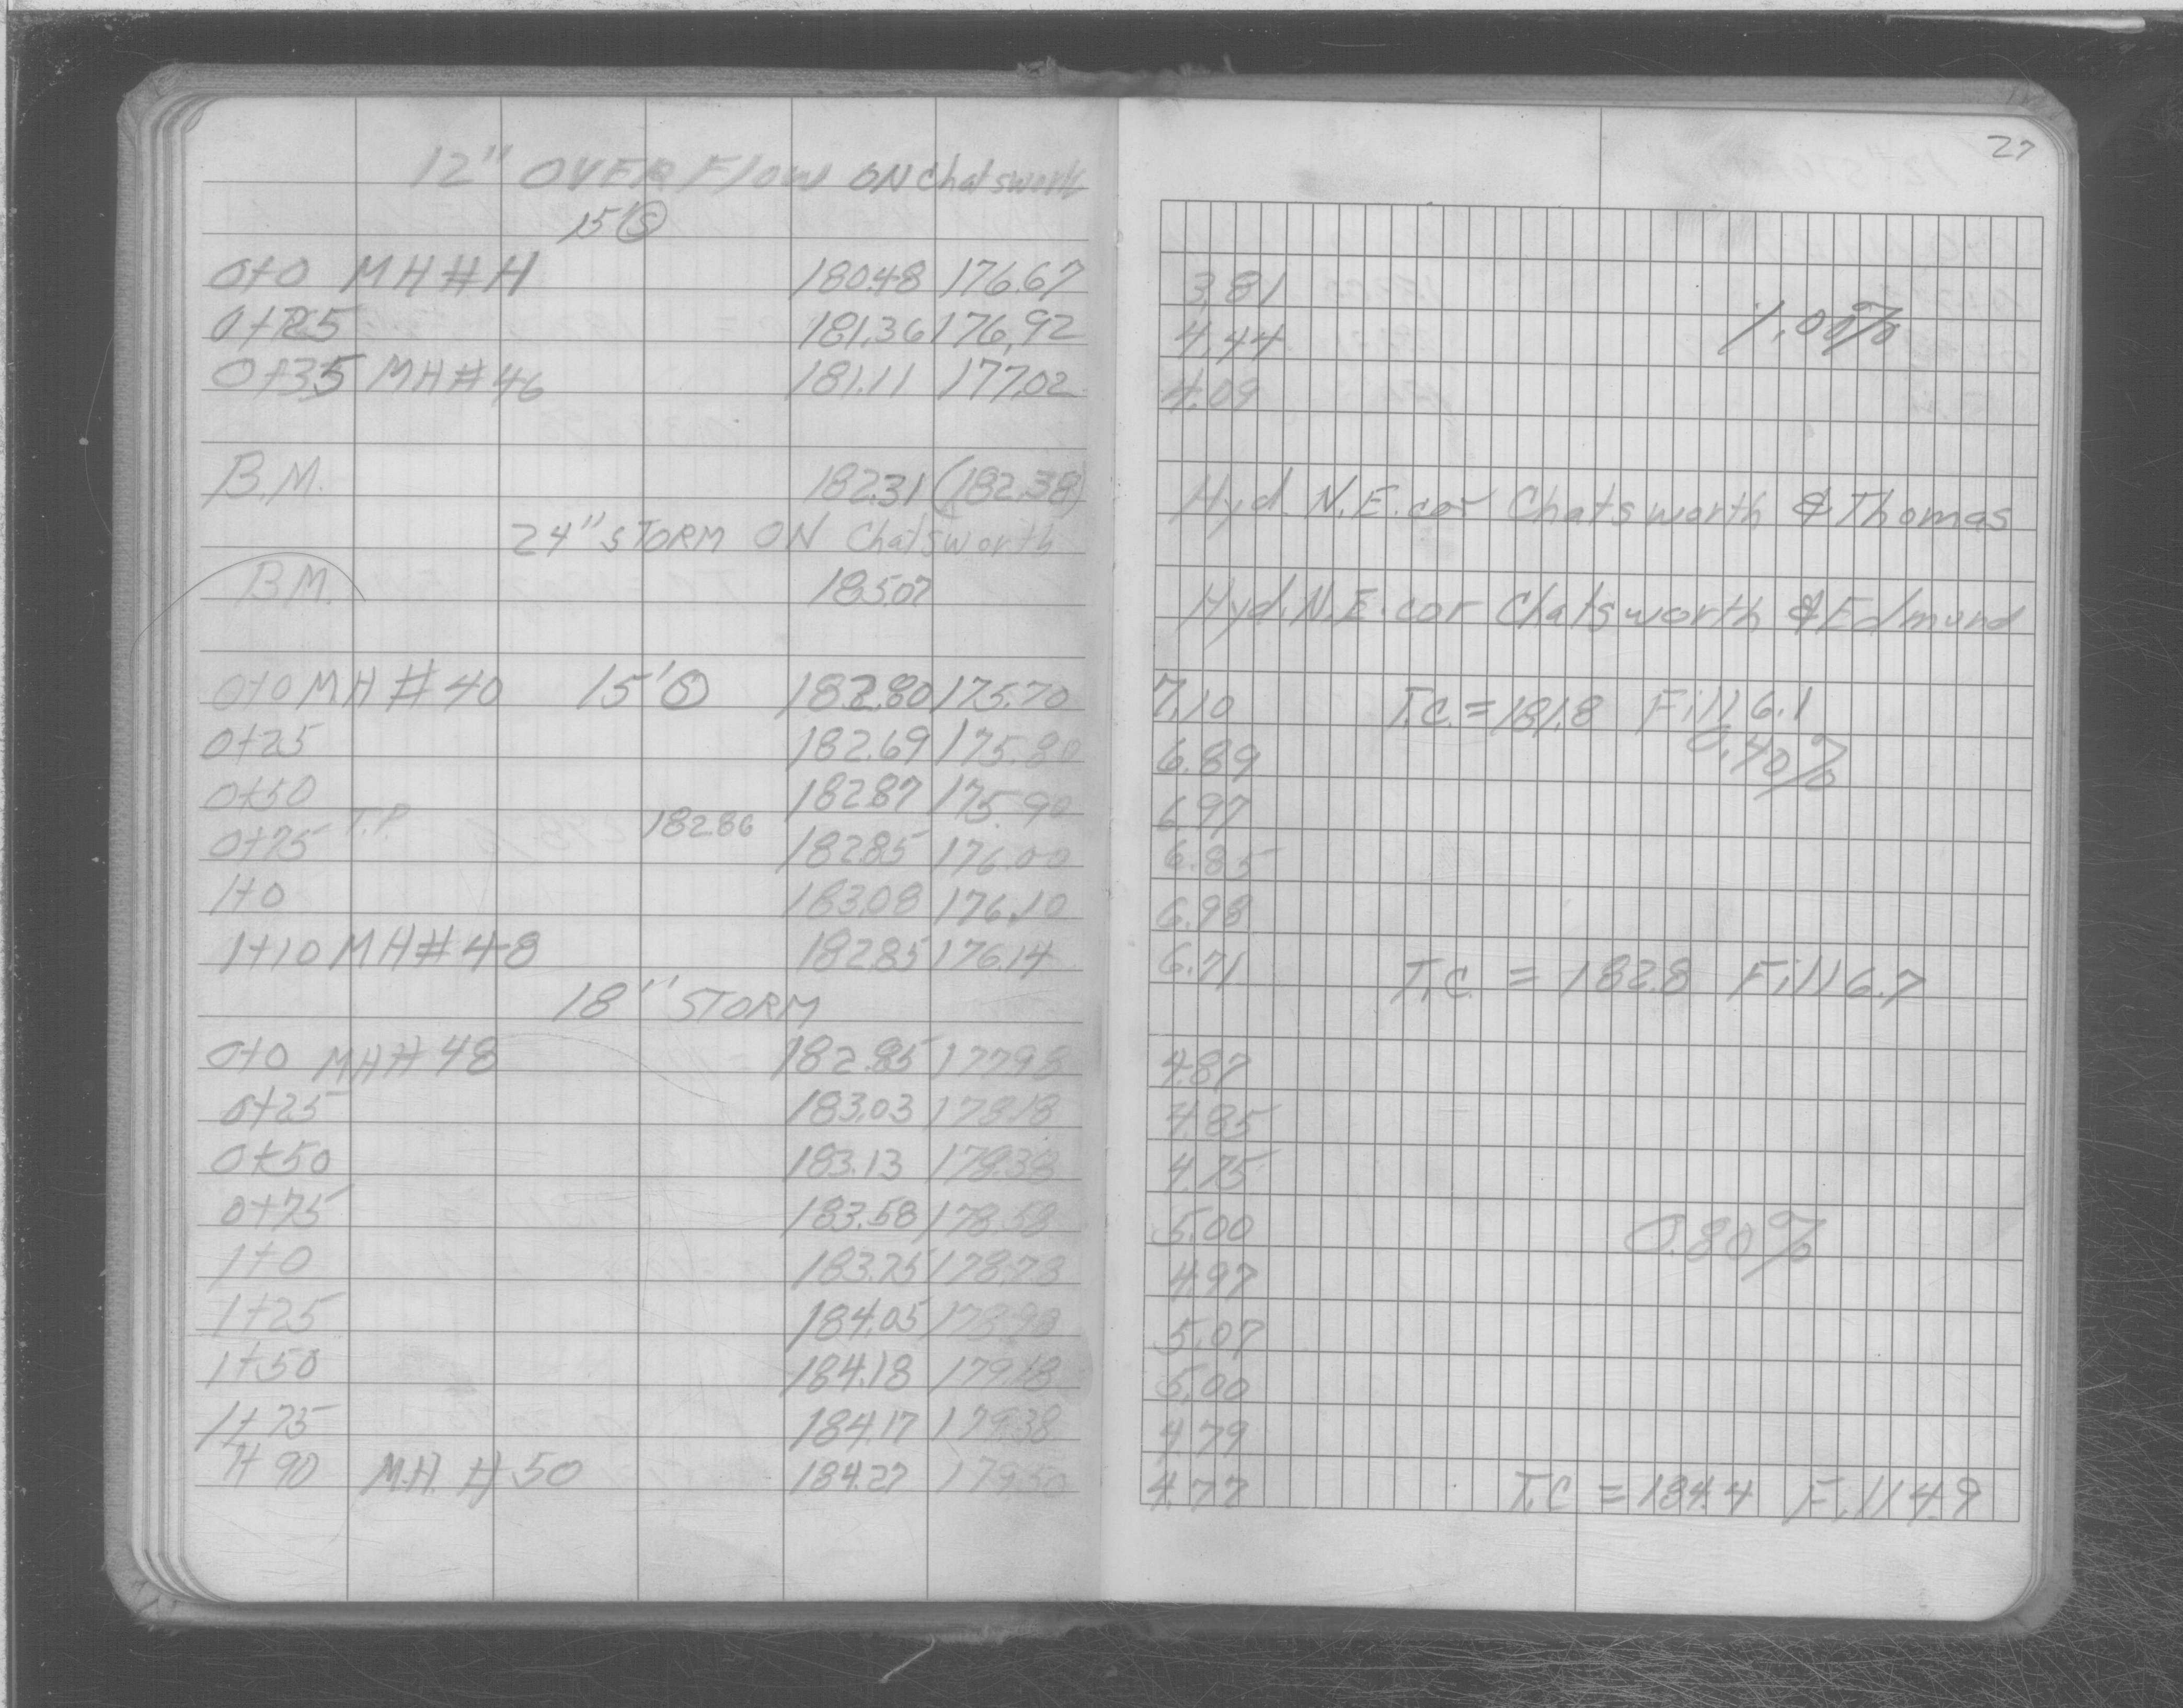 27
12" OVERFlow ON Chatsworth
15' Ⓢ
0+0 MH#H 180.48 176.67 3.81
0+25 181.36 176.92 4.44 1.00%
0+35 MH#46 181.11 177.02 4.09
B.M. 182.31 (182.38) Hyd. N.E. cor Chatsworth & Thomas
24" STORM ON Chatsworth
B.M. 185.07 Hyd. N.E. cor Chatsworth & Edmund
0+0 MH #40 15' Ⓢ 182.80 175.70 7.10 T.C. = 181.8 Fill 6.1
0+25 182.69 175.80 6.89 0.40%
0+50 182.87 175.90 6.97
T.P. 182.86
0+75 182.85 176.00 6.85
1+0 183.08 176.10 6.98
1+10 MH#48 182.85 176.14 6.71 T.C. = 182.8 Fill 6.7
18" STORM
0+0 MH#48 182.85 177.98 4.87
0+25 183.03 178.18 4.85
0+50 183.13 178.38 4.75
0+75 183.58 178.58 5.00 0.80%
1+0 183.75 178.78 4.97
1+25 184.05 178.98 5.07
1+50 184.18 179.18 5.00
1+75 184.17 179.38 4.79
1+90 M.H. #50 184.27 179.50 4.77 T.C = 184.4 Fill 4.9